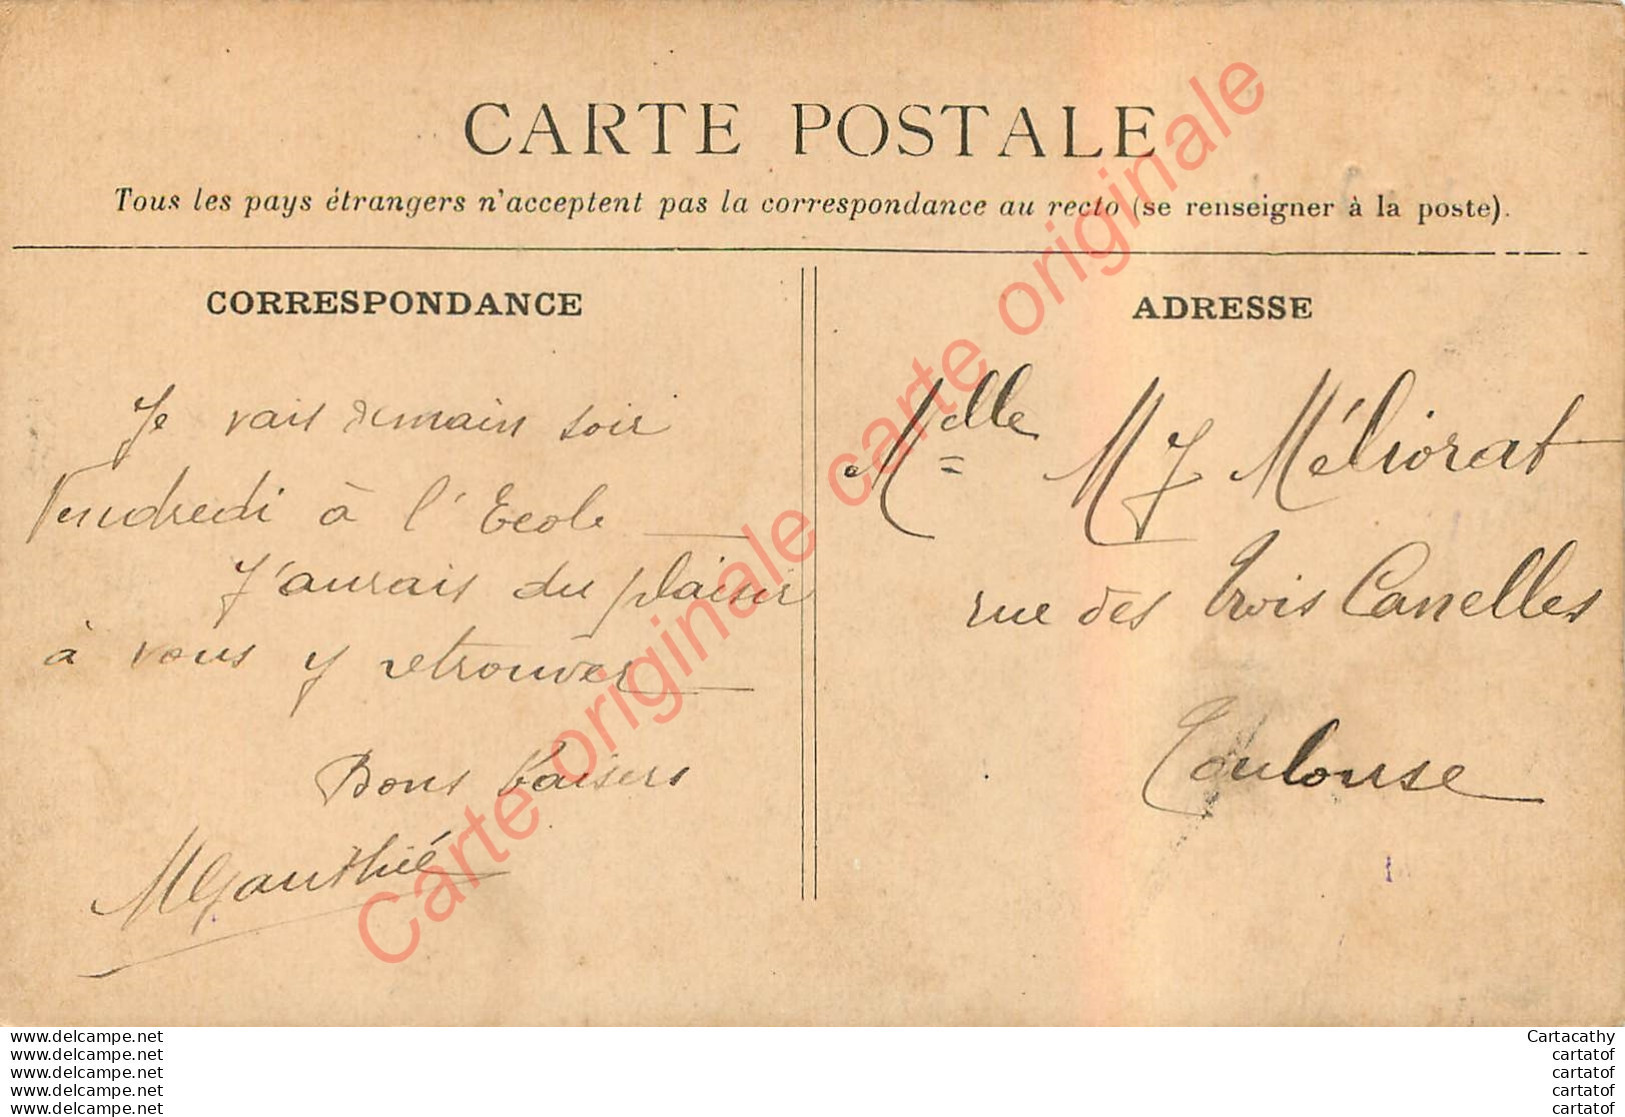 CARTE POSTALE
Tous les pays étrangers n'acceptent pas la correspondance au recto (se renseigner à la poste).
CORRESPONDANCE
Je vais demain soir
Vendredi à l'Ecole
J'aurais du plaisir
à vous y retrouver
Bons baisers
MGauthié
ADRESSE
Melle MJ Méliorat
rue des trois Canelles
Toulouse
Carte originale carte originale Carte originale carte originale
www.delcampe.net
www.delcampe.net
www.delcampe.net
www.delcampe.net
www.delcampe.net
Cartacathy
cartatof
cartatof
cartatof
cartatof